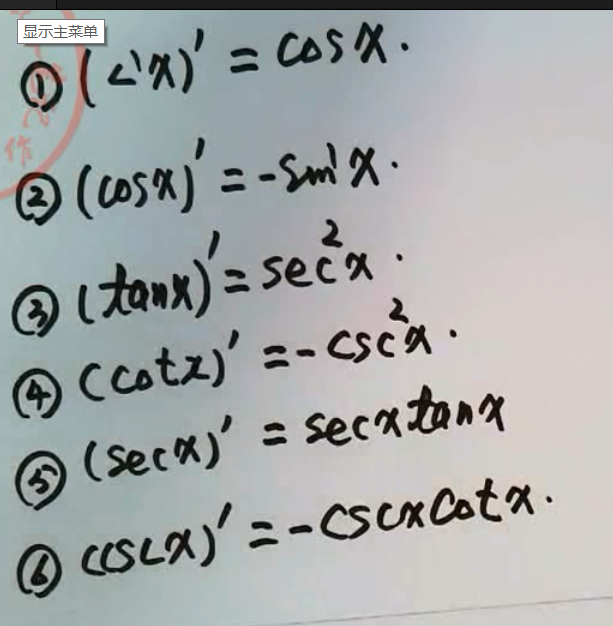 显示主菜单
作
① ( x)' = cosx.
② (cosx)' = -sin x.
③ (tanx)' = sec²x.
④ (cotx)' = -csc²x.
⑤ (secx)' = secxtanx
⑥ (cscx)' = -cscxcotx.